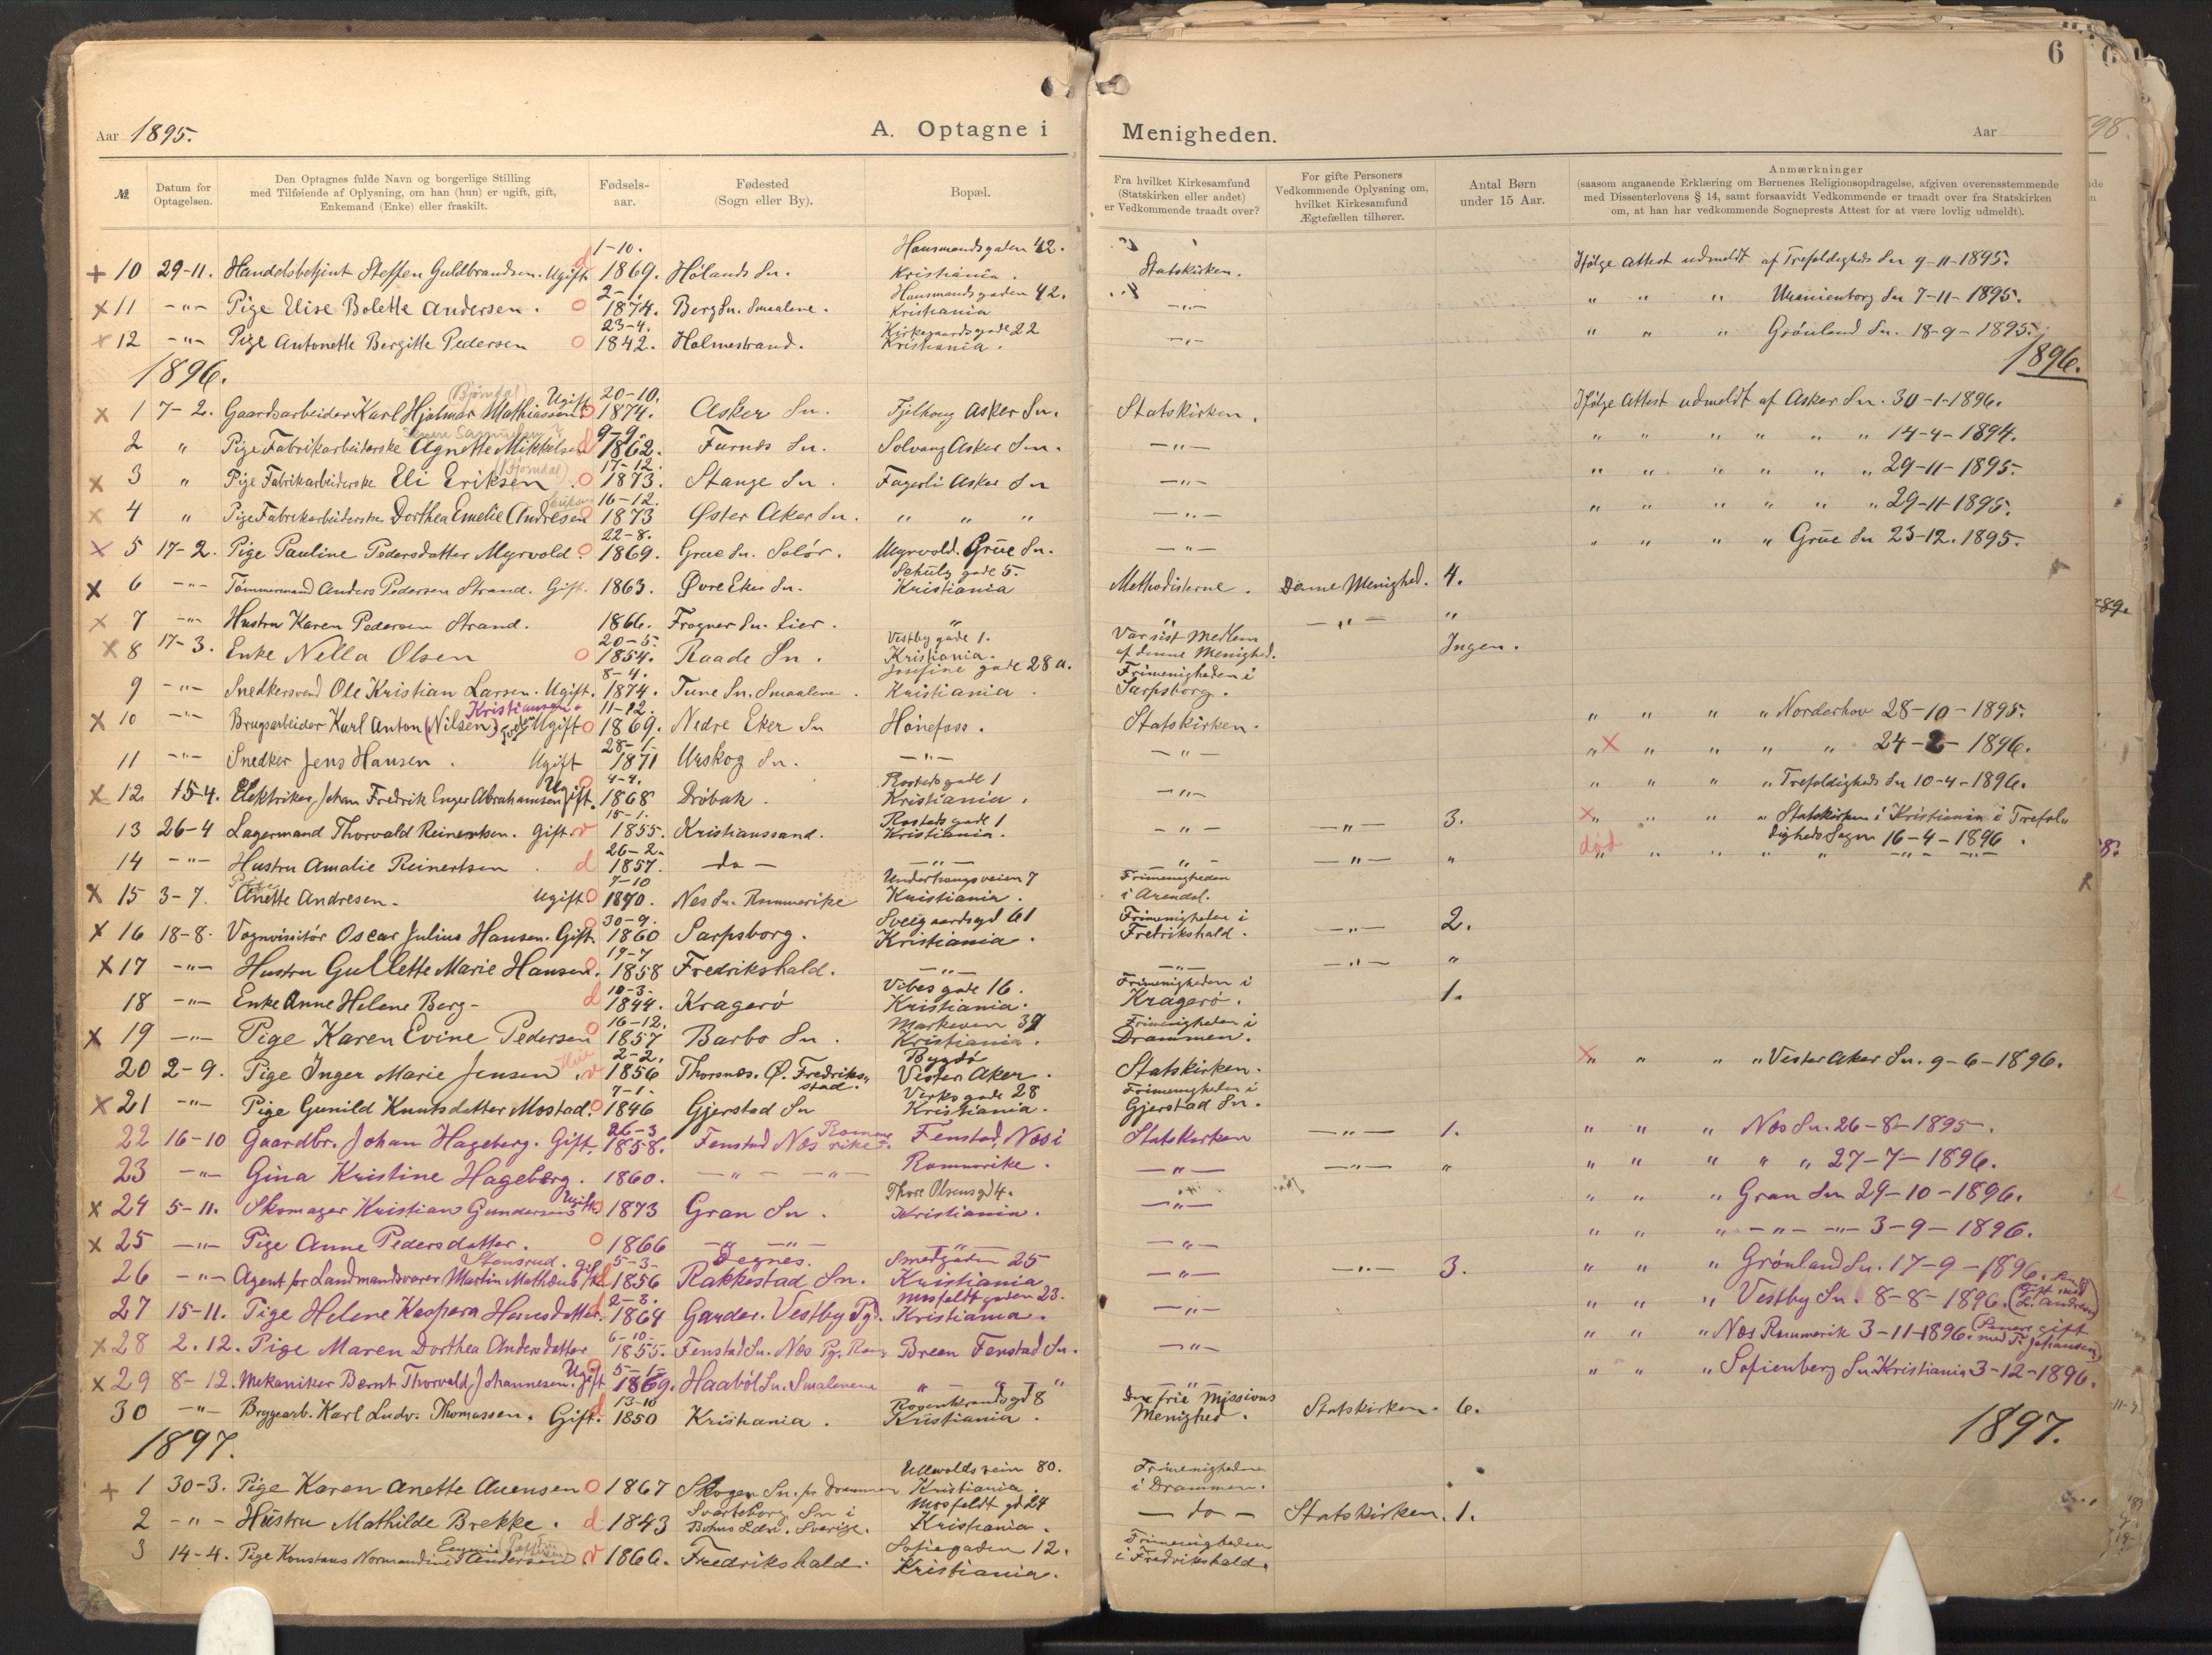 6
Aar 1895. A. Optagne i Menigheden. Aar
№ Datum for Optagelsen. Den Optagnes fulde Navn og borgerlige Stilling med Tilføiende af Oplysning, om han (hun) er ugift, gift, Enkemand (Enke) eller fraskilt. Fødsels-aar. Fødested (Sogn eller By). Bopæl. Fra hvilket Kirkesamfund (Statskirken eller andet) er Vedkommende traadt over? For gifte Personers Vedkommende Oplysning om, hvilket Kirkesamfund Ægtefællen tilhører. Antal Børn under 15 Aar. Anmærkninger (saasom angaaende Erklæring om Børnenes Religionsopdragelse, afgiven overensstemmende med Dissenterlovens § 14, samt forsaavidt Vedkommende er traadt over fra Statskirken om, at han har vedkommende Sogneprests Attest for at være lovlig udmeldt).
+ 10 29-11. Handelsbetjint Steffen Guldbrandsen. Ugift d 1-10. 1869. Hølands Sn. Hausmandsgaden 42. Kristiania. Statskirken. Ifølge Attest udmeldt af Trefoldigheds Sn 9-11-1895.
x 11 -"- Pige Elise Bolette Andersen. o 1874. Berg Sn. Smaalene. Hausmandsgaden 42. Kristiania -"- " " " Uranienborg Sn 7-11-1895.
x 12 -"- Pige Antonette Bergitte Pedersen o 23-4. 1842. Holmestrand. Kirkegaardsgade 22 Kristiania. -"- " " " Grønland Sn. 18-9-1895.
1896. 1896.
x 1 7-2. Gaardsarbeider Karl Hjalmar Mathiassen (Bjørndal) Ugift o 20-10. 1874. Asker Sn. Fjelhoug Asker Sn. Statskirken. Ifølge Attest udmeldt af Asker Sn. 30-1-1896.
2 " Pige Fabrikarbeiderske Agnette Mikkelsen d 9-9. 1862. Furnes Sn. Solvang Asker Sn. -"- " " " " " " 14-4-1894.
x 3 " Pige Fabrikarbeiderske Eli Eriksen (Bjørndal). o 17-12. 1873. Stange Sn. Fagerli Asker Sn -"- " " " " " " 29-11-1895.
x 4 " Pige Fabrikarbeiderske Dorthea Emelie Andresen o 16-12. 1873 Øster Aker Sn. " " " -"- " " " " " " 29-11-1895.
x 5 17-2. Pige Pauline Pedersdatter Myrvold. o 22-8. 1869. Grue Sn. Solör. Myrvold. Grue Sn. -"- " " " " Grue Sn 23-12.1895.
x 6 -"- Tømmermand Anders Pedersen Strand. Gift. 1863. Øvre Eker Sn. Schultz gade 5. Kristiania Methodisterne. Denne Menighed. 4.
x 7 -"- Hustru Karen Pedersen Strand. 1866. Frogner Sn. Lier. " " -"- "
x 8 17-3. Enke Nella Olsen o 20-5. 1854. Raade Sn. Vestby gade 1. Kristiania. Var sist Medlem af denne Menighed. Ingen.
9 -"- Snedkersvend Ole Kristian Larsen. Ugift. 8-4. 1874. Tune Sn. Smaalene. Josefine gade 28 a. Kristiania. Frimenigheden i Sarpsborg.
x 10 -"- Brugsarbeider Karl Anton (Nilsen) Kristiansen. Ugift o 11-12. 1869. Nedre Eker Sn Hönefoss. Statskirken. " " " " Norderhov 28-10-1895.
11 -"- Snedker Jens Hansen. Ugift 28-1- 1871 Urskog Sn. -"- -"- x " " " " " 24-2-1896.
x 12 15-4. Elektriker Johan Fredrik Enger Abrahamsen Ugift. o 4-4. 1868 Dröbak. Rostedsgade 1 Kristiania. -"- " " " " Trefoldigheds Sn 10-4-1896.
13 26-4 Lagermand Thorvald Reinertsen. Gift. v 15-1. 1855. Kristianssand. Rostedsgade 1 Kristiania. -"- -"- 3. x " " " " Statskirken i Kristiania i Trefoldigheds Sogn 16-4-1896.
14 -"- Hustru Amalie Reinertsen. d 26-2. 1857. do - -"- -"- -"- " død " " " " " -"- -"-
x 15 3-7. Pige Anette Andresen. Ugift o 7-10 1870. Nes Sn. Rummerike Underhaugsveien 7 Kristiania. Frimenigheden i Arendal.
x 16 18-8. Vognvisitör Oscar Julius Hansen. Gift. o 30-9. 1860 Sarpsborg. Sveigaardsgd 61 Kristiania. Frimenigheden i Fredrikshald. -"- 2.
x 17 -"- Hustru Gullette Marie Hansen. o 19-7 1858 Fredrikshald. -"- -"- -"- "
18 -"- Enke Anne Helene Berg- d 10-3- 1844. Kragerö Vibes gade 16. Kristiania. Frimenigheden i Kragerö. 1.
x 19 -"- Pige Karen Evine Pedersen o 16-12. 1857 Barbo Sn. Markveien 39 Kristiania. Frimenigheden i Drammen.
20 2-9. Pige Inger Marie Jensen. v 2-2. 1856 Thorsnes. Ø. Fredriksstad. Bygdö Vester Aker. Statskirken. x " " " " Vester Aker Sn. 9-6-1896.
x 21 -"- Pige Gunild Knutsdatter Mostad. o 7-1. 1846 Gjerstad Sn Verksgade 28 Kristiania. Frimenigheden i Gjerstad Sn.
22 16-10 Gaardbr. Johan Hageberg. Gift. 26-3 1858. Fenstad Nes Rommerike. Fenstad, Nes i Statskirken -"- 1. " " " Nes Sn. 26-8-1895-.
23 -"- Gina Kristine Hageberg. 1860. -"- -"- Rommerike. -"- -"- " " " " " " 27-7-1896.
x 24 5-11. Skomager Kristian Gundersen Ugift. o 1873 Gran Sn. Thor Olsens gd 4. Kristiania. -"- " " " Gran Sn 29-10-1896.
x 25 -"- Pige Anne Pedersdatter. o 1866 -"- -"- -"- -"- " " " -"- -"- 3-9-1896.
26 -"- Agent for Landmandsvarer Martin Mathæus Stensrud. gift d 5-3- 1856 Degnes. Rakkestad Sn. Smedgaden 25 Kristiania -"- -"- 3. " " " Grønland Sn. 17-9-1896.
27 15-11. Pige Helene Kaspara Hansdatter. d 2-3. 1864 Garder. Vestby Pgd. Mosfeldt gaden 23. Kristiania. -"- " " " Vestby Sn. 8-8-1896. (Gift med L. Andresen)
x 28 2.12. Pige Maren Dorthea Andersdatter 6-10- 1855. Fenstad Sn. Nes Pg. Rom. Breen Fenstad Sn. -"- " " " Nes Rummerik 3-11-1896. (Senere gift med T. Johansen)
x 29 8-12. Mekaniker Bernt Thorvald Johannesen. Ugift o 5-1- 1869. Haaböl Sn. Smalenene " - " - " -"- " " " Sofienberg Sn. Kristiania 3-12-1896.
30 -"- Bryggearb. Karl Ludv. Thomassen. Gift. d 13-10 1850 Kristiania. Rosenkrandsgd 8 Kristiania. Den frie Missions Menighed. Statskirken. 6.
1897. 1897.
+ 1 30-3. Pige Karen Anette Auensen o 1867 Skoger Sn. pr Drammen Ullevoldsvein 80. Kristiania. Frimenigheden i Drammen.
2 -"- Hustru Mathilde Brekke. d 1843 Svarteborg Sn i Bohus Len. Sverige. Mosfeldt gd 24 Kristiania. - do - Statskirken. 1.
3 14-4. Pige Konstans Normandine Andersen v 1866. Fredrikshald. Sofiegaden 12. Kristiania. Frimenigheden i Fredrikshald.